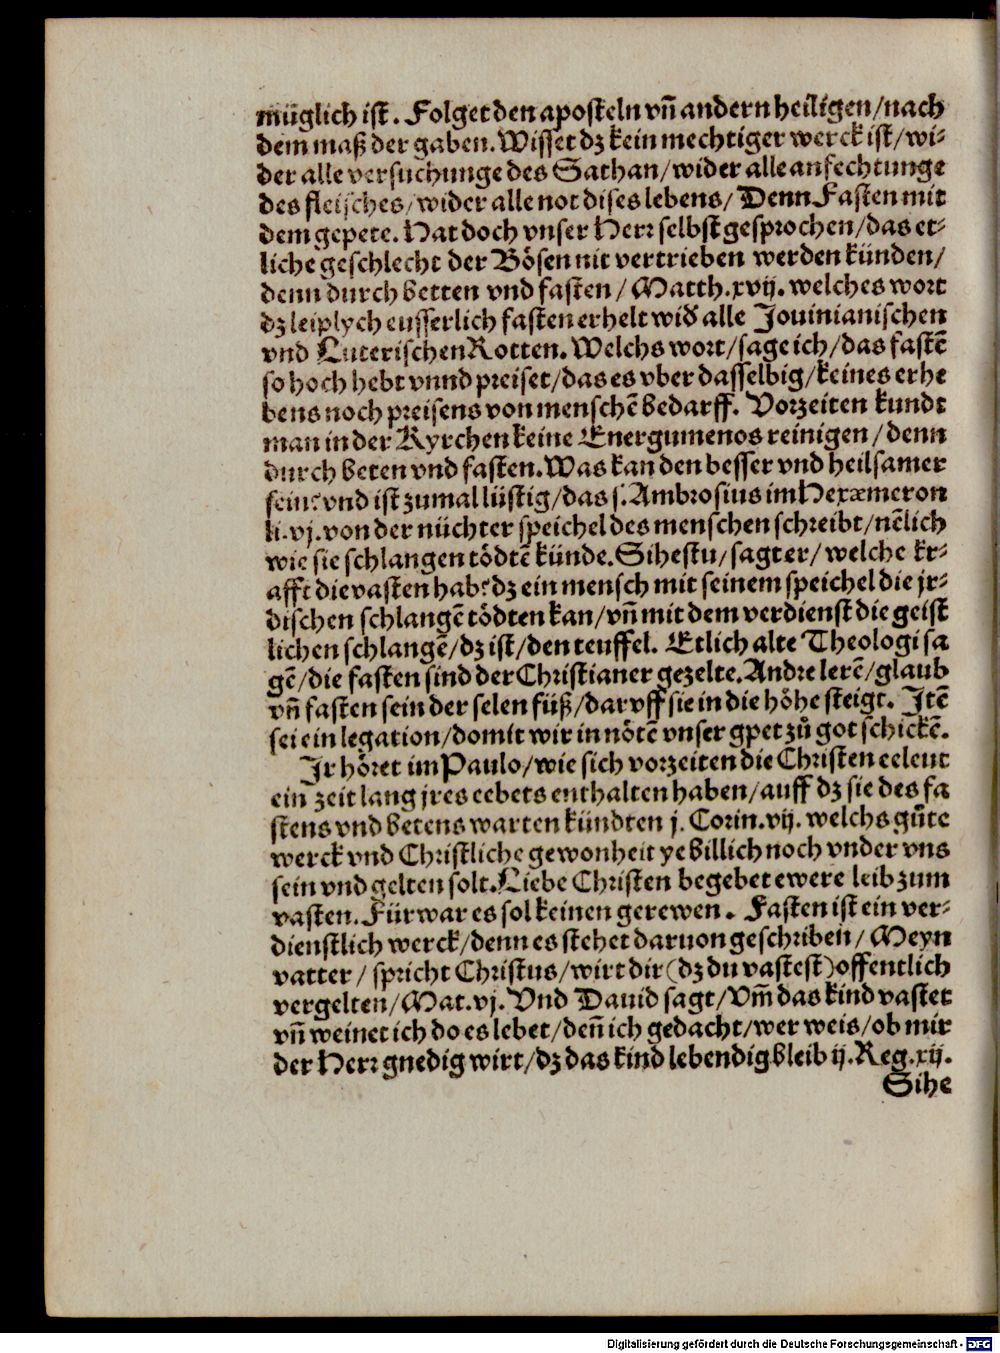 müglich ist. Folget den aposteln vñ andern heiligen/nach
dem maß der gaben. Wisset dz kein mechtiger werck ist/wi-
der alle versuchunge des Sathan/wider alle anfechtunge
des fleisches/wider alle not dises lebens/Denn Fasten mit
dem gepete. Hat doch vnser Herr selbst gesprochen/das et-
liche geschlecht der Bösen nit vertrieben werden künden/
denn durch betten vnd fasten/Matth.xvij. welches wort
dz leiplych eusserlich fasten erhelt wid alle Jouinianischen
vnd Luterischen Rotten. Welchs wort/sage ich/das fastē
so hoch hebt vnnd preiset/das es vber dasselbig/keines erhe
bens noch preisens von menschē bedarff. Vorzeiten kundt
man in der Kyrchen keine Energumenos reinigen/denn
durch beten vnd fasten. Was kan den besser vnd heilsamer
sein? vnd ist zumal lüstig/das s. Ambrosius im Hexæmeron
li.vj. von der nüchter speichel des menschen schreibt/nēlich
wie sie schlangen tödtē künde. Sihestu/sagt er/welche kr-
afft die vasten hab? dz ein mensch mit seinem speichel die jr-
dischen schlangē tödten kan/vñ mit dem verdienst die geist
lichen schlangē/dz ist/den teuffel. Etlich alte Theologi sa
gē/die fasten sind der Christianer gezelte. Andre lerē/glaub
vñ fasten sein der selen füß/dar vff sie in die höhe steigt. Jtē
sei ein legation/domit wir in nötē vnser gpet zů got schickē.
Jr höret im Paulo/wie sich vorzeiten die Christen eeleut
ein zeit lang jres eebets enthalten haben/auff dz sie des fa
stens vnd betens warten kündten j. Corin.vij. welchs gůte
werck vnd Christliche gewonheit ye billich noch vnder vns
sein vnd gelten solt. Liebe Christen begebet ewere leib zum
vasten. Für war es sol keinen gerewen. Fasten ist ein ver-
dienstlich werck/denn es stehet daruon geschriben/Meyn
vatter/spricht Christus/wirt dir (dz du vastest) offentlich
vergelten/Mat.vj. Vnd Dauid sagt/Vm̄ das kind vastet
vñ weinet ich do es lebet/deñ ich gedacht/wer weis/ob mir
der Herr gnedig wirt/dz das kind lebendig bleib ij.Reg.xij.
Sihe
Digitalisierung gefördert durch die Deutsche Forschungsgemeinschaft - DFG